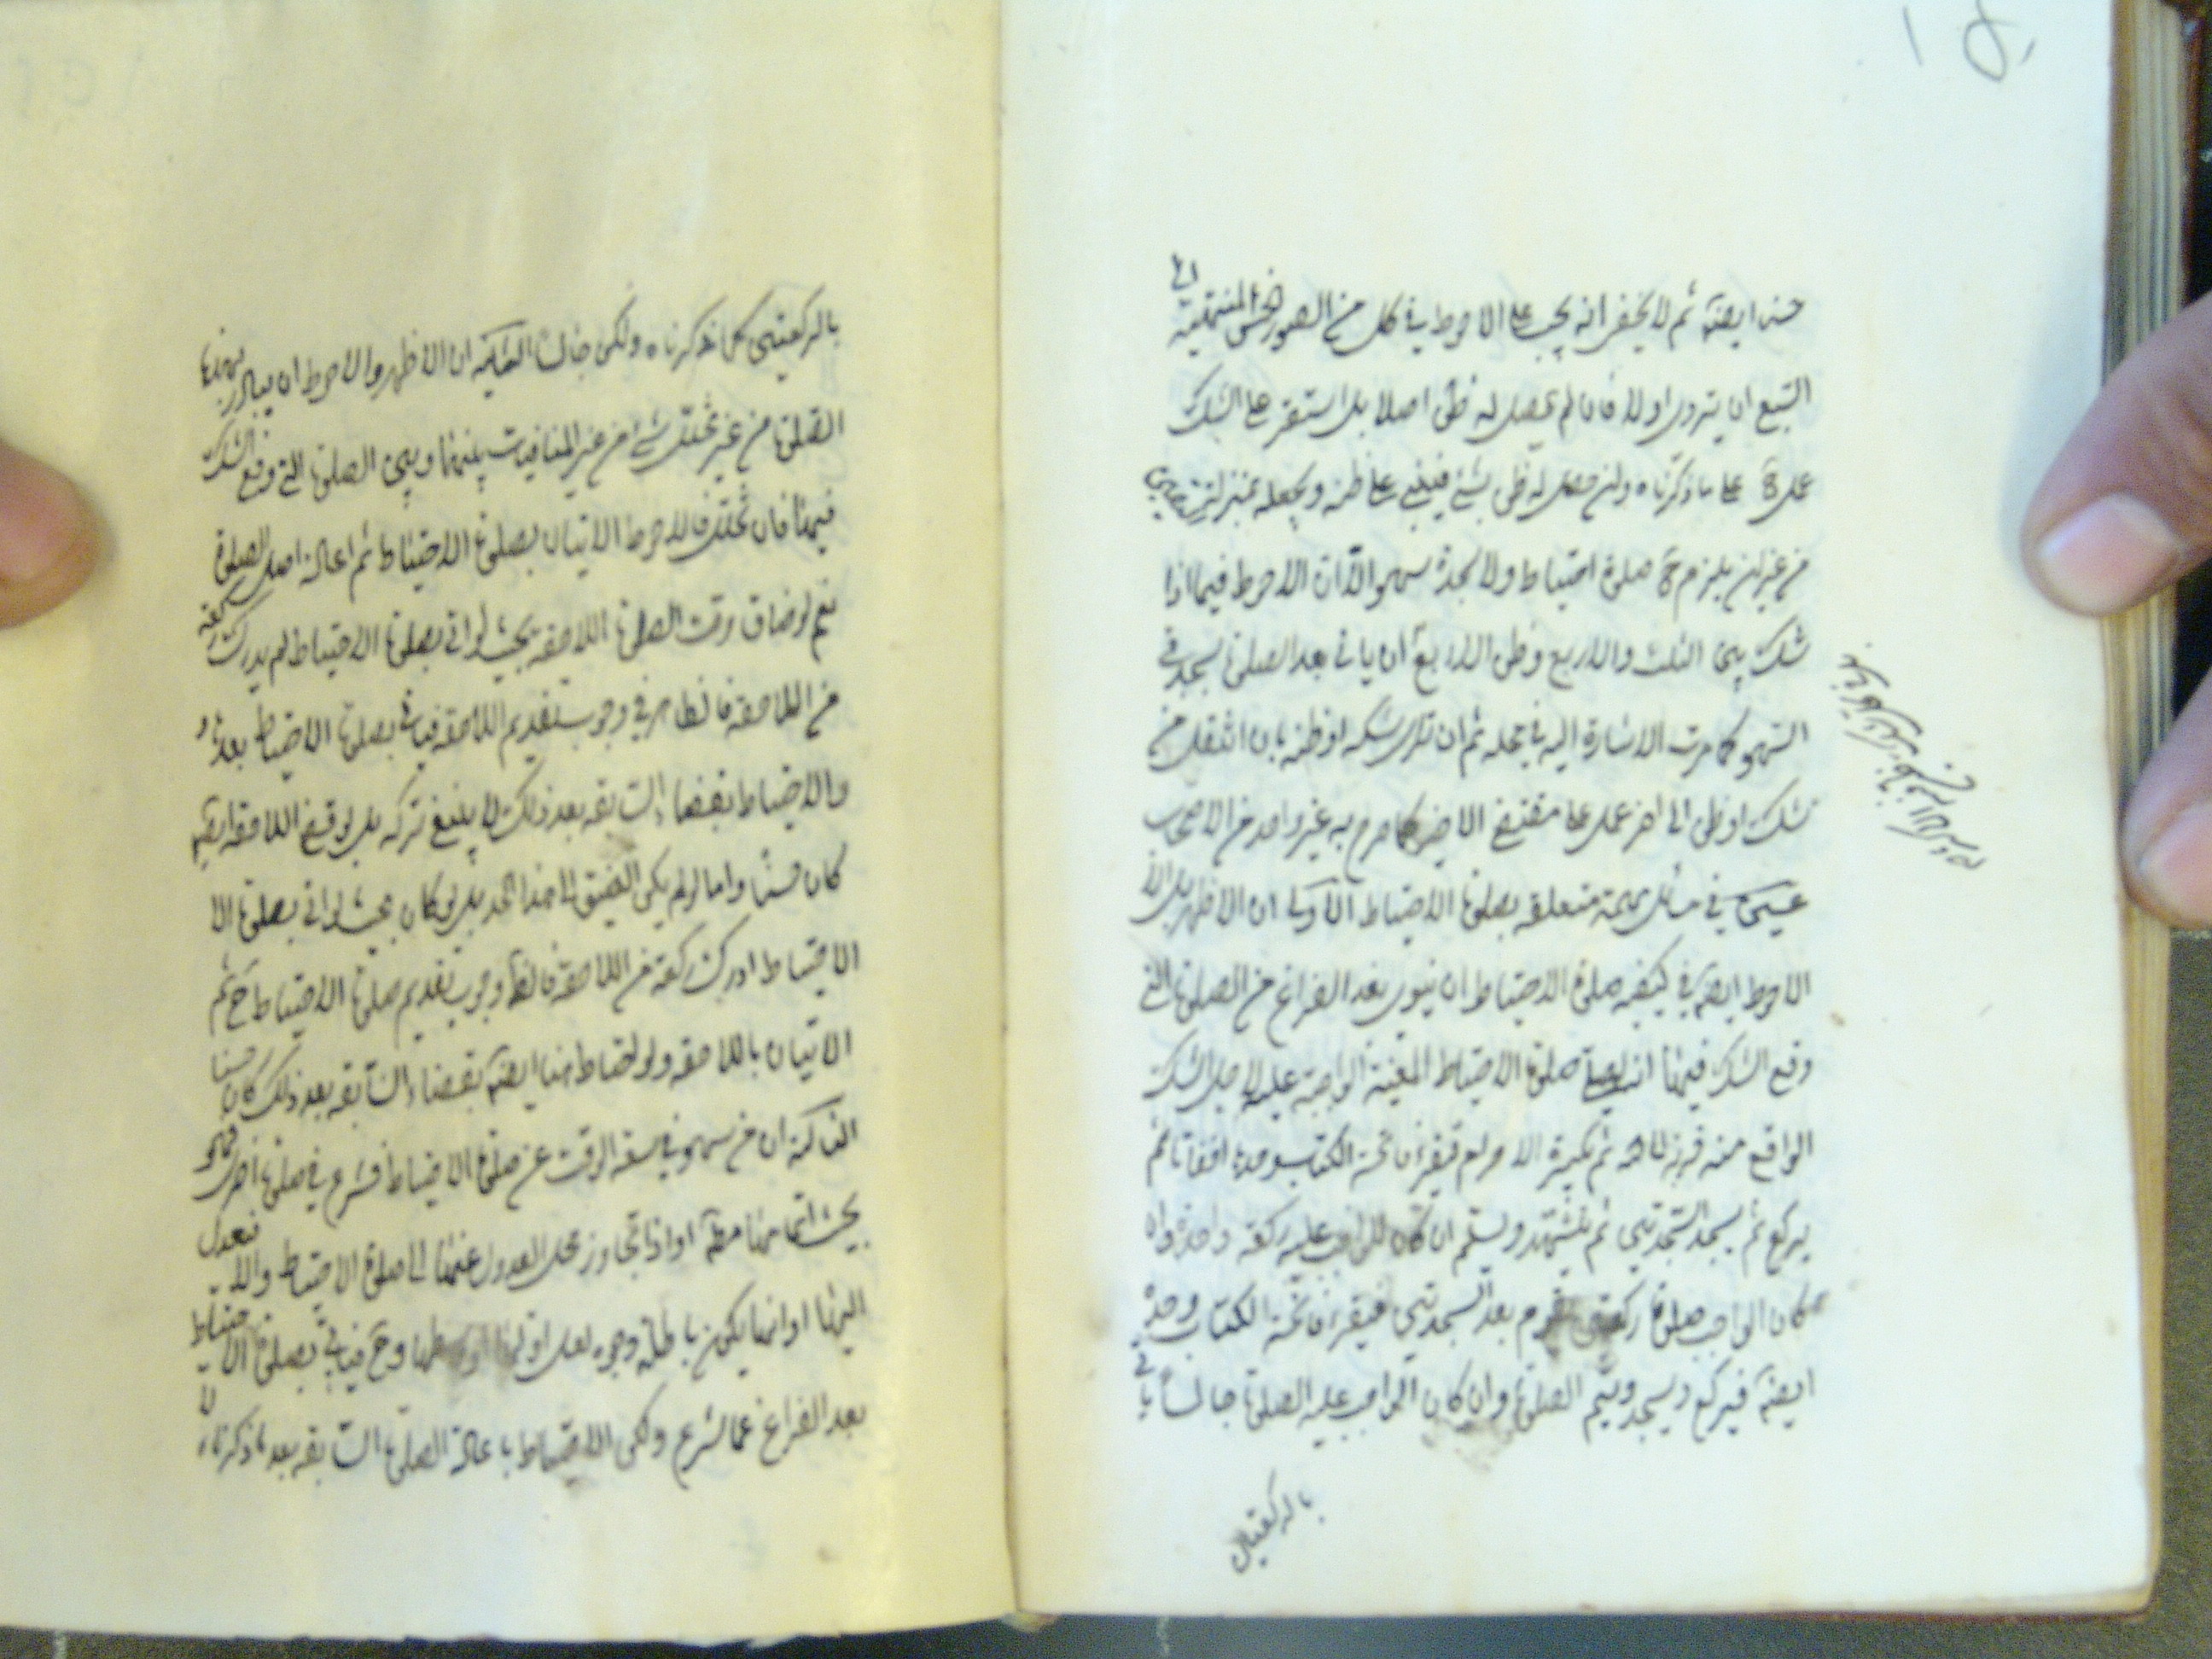 حسنا ايضا ثم لا يخفى انه يجب على الاحوط في كل من الصور الخمس المنتهية الى
التسع ان يتروى اولا فان لم يحصل له ظن اصلا بل استقر على الشك
عمل ح على ما ذكرناه وان حصل له ظن بشئ فيبنى على ظنه ويجعله بمنزلة
من غير ان يلزم ح صلوة احتياط ولا سجدة سهو الا ان الاحوط فيما اذا
شك بين الثلث والاربع وظن الاربع ان ياتى بعد الصلوة بسجدتى
السهو كما مرت الاشارة اليه في محله ثم ان تكرر شكه او ظنه بان انتقل من
شك او ظن الى اخر عمل على مقتضى الاخير كما صرح به غير واحد من الاصحاب
في مسائل مهمة متعلقه بصلوة الاحتياط الاولى ان الاظهر بل الا
الاحوط ايضا في كيفيه صلوة الاحتياط ان ينوى بعد الفراغ من الصلوة التى
وقع الشك فيها انه يصلى صلوة الاحتياط المعينة الواجبة عليه لاجل الشك
الواقع منه قربة الى الله ثم تكبيرة الاحرام فيقرء فاتحة الكتاب وحدها اخفاتا ثم
يركع ثم يسجد السجدتين ثم يتشهد ويسلم ان كان الواجب عليه ركعة واحدة وان
كان الواجب صلوة ركعتين يقوم بعد السجدتين فيقرء فاتحة الكتاب وحدها
ايضا فيركع ويسجد ويتم الصلوة وان كان الواجب عليه الصلوة جالسا ياتى
بالركعتين
بالركعتين كما ذكرناه ولكن جالسا الثانية ان الاظهر والاحوط ان يبادر بهذه
الصلوة من غير تخلل شئ من غير المنافيات بينها وبين الصلوة التى وقع الشك
فيها فان تخلل فالاحوط الاتيان بصلوة الاحتياط ثم اعادة اصل الصلوة
نعم لو ضاق وقت الصلوة اللاحقه بحيث لو اتى بصلوة الاحتياط لم يدرك ركعة
من اللاحقه فالظاهر وجوب تقديم اللاحقه فياتى بصلوة الاحتياط بعدها
والاحتياط بقضاء السابقه بعد ذلك لا ينبغى تركه بل لو قضى اللاحقه ايضا
كان حسنا واما لو لم يكن الضيق الى هذا الحد بل لو كان بحيث لو اتى بصلوة الا
الاحتياط ادرك ركعة من اللاحقه فالظ وجوب تقديم صلوة الاحتياط ح ثم
الاتيان باللاحقه ولو احتاط هنا ايضا بقضاء السابقه بعد ذلك كان حسنا
الثالثة ان من سهو في سعة الوقت عن صلوة الاحتياط فشرع في صلوة اخرى
او اذا تجاوز محل العدول عنها الى صلوة الاحتياط والا فعدل
اليها او انما يكون باطلة وجوه لعل وح فياتى بصلوة الاحتياط
بعد الفراغ عما شرع ولكن الاحتياط باعادة الصلوة السابقه بعد ما ذكرناه لا